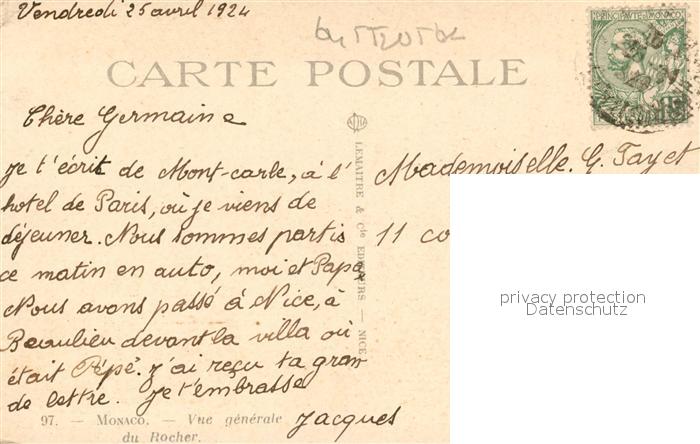 Vendredi 25 avril 1924
CARTE POSTALE
PRINCIPAUTE DE MONACO
Chère Germaine
Je t'écrit de Mont-carle, à l'
hotel de Paris, où je viens de
déjeuner. Nous sommes partis
ce matin en auto, moi et Papa
Nous avons passé à Nice, à
Beaulieu devant la villa où
était Pépé. J'ai reçu ta gran
de lettre. Je t'embrasse
Jacques
97. — MONACO. — Vue générale
du Rocher.
LEMAITRE & Cie EDITEURS — NICE
Mademoiselle. G. Tayet
11 co
privacy protection
Datenschutz